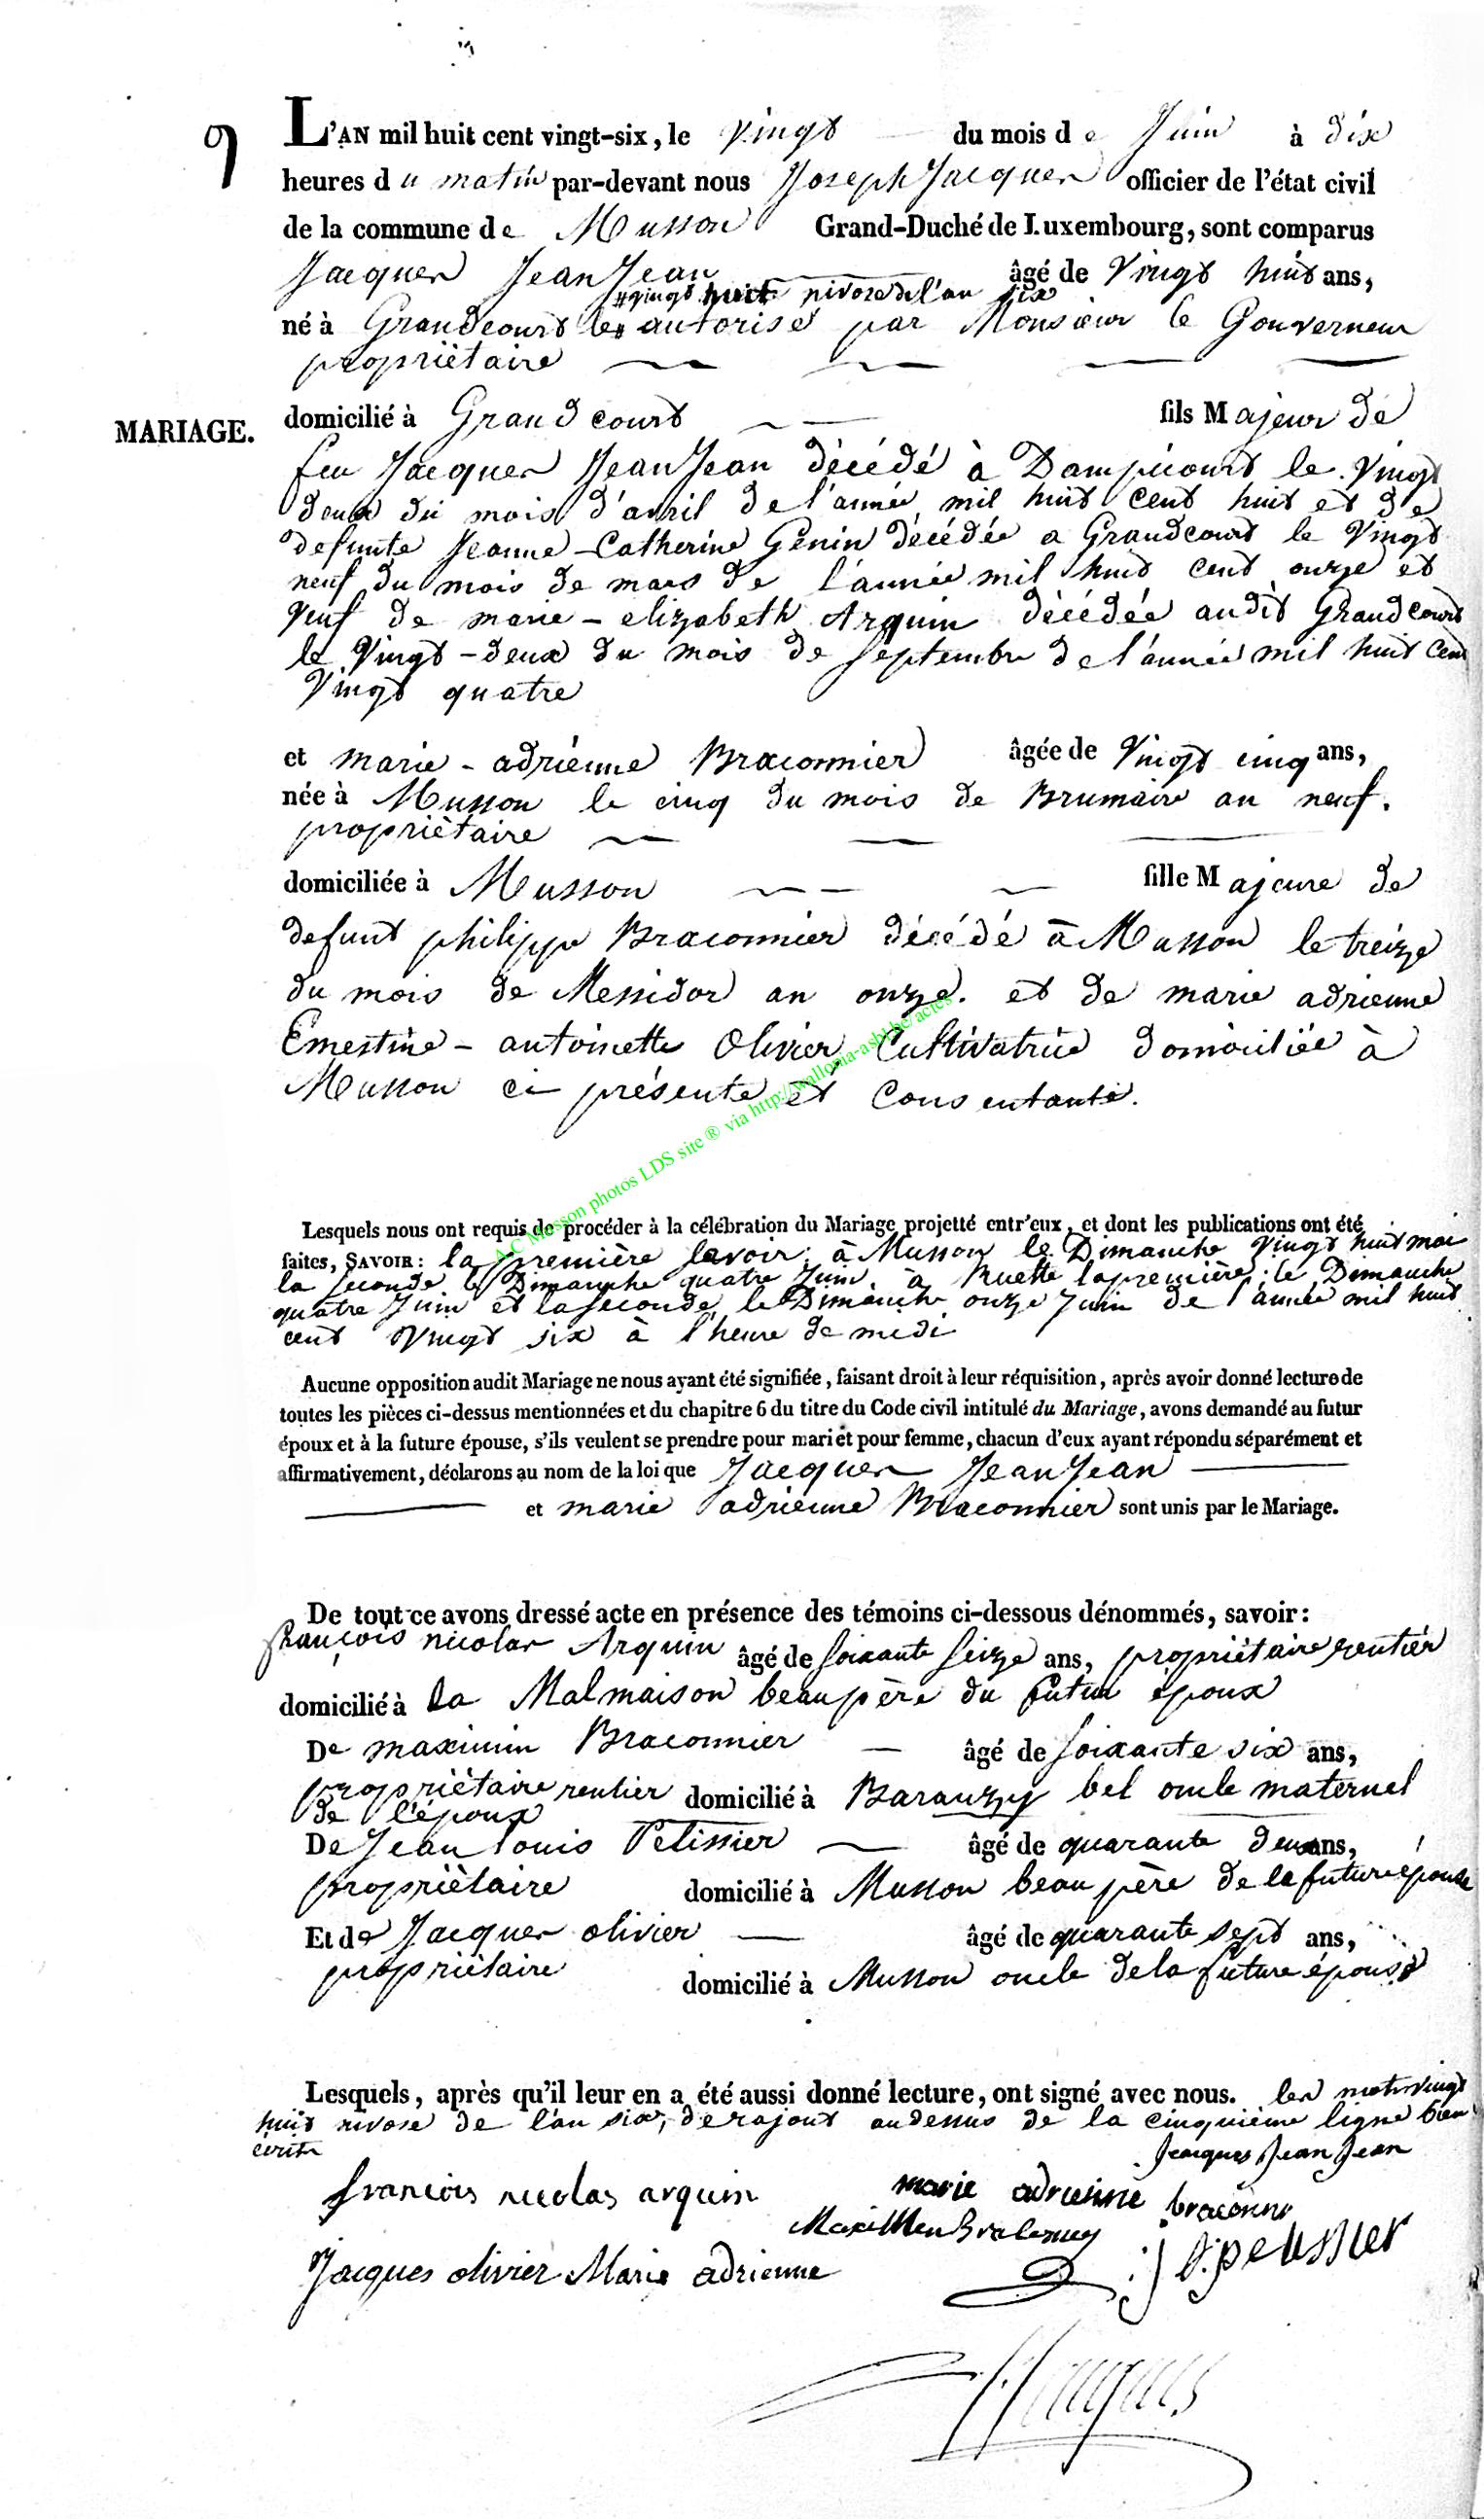 9
L'AN mil huit cent vingt-six, le vingt du mois de Juin à dix
heures du matin par-devant nous Joseph Jacques officier de l'état civil
de la commune de Musson Grand-Duché de Luxembourg, sont comparus
Jacques JeanJean âgé de Vingt huit ans,
#vingt huit nivose de l'an six
né à Grandcourt le# autorisé par Monsieur le Gouverneur
propriètaire
MARIAGE.
domicilié à Grandcourt fils Majeur de
feu Jacques JeanJean décédé à Dampicourt le Vingt
deux du mois d'avril de l'année mil huit cent huit et de
defunte Jeanne-Catherine Genin décédée a Grandcourt le Vingt
neuf du mois de mars de l'année mil huit cent onze et
veuf de marie-elizabeth Arquin décédée audit Grandcourt
le Vingt-deux du mois de Septembre de l'année mil huit cent
Vingt quatre
et marie-adrienne Braconnier âgée de Vingt cinq ans,
née à Musson le cinq du mois de Brumaire an neuf.
propriètaire
domiciliée à Musson fille Majeure de
defunt philippe Braconnier décédé à Musson le treize
du mois de Messidor an onze. et de marie adrienne
Ernestine-antoinette Olivier Cultivatrice domiciliée à
Musson ci présente et Consentante.
A.C Musson photos LDS site ® via http://wallonia-asbl.be/actes
Lesquels nous ont requis de procéder à la célébration du Mariage projetté entr'eux, et dont les publications ont été
faites, SAVOIR: la première savoir: à Musson le Dimanche vingt huit mai
la seconde le Dimanche quatre Juin. à Ruette la première; le Dimanche
quatre Juin et la seconde le Dimanche onze Juin de l'année mil huit
cent Vingt six à l'heure de midi
Aucune opposition audit Mariage ne nous ayant été signifiée, faisant droit à leur réquisition, après avoir donné lecture de
toutes les pièces ci-dessus mentionnées et du chapitre 6 du titre du Code civil intitulé du Mariage, avons demandé au futur
époux et à la future épouse, s'ils veulent se prendre pour mari et pour femme, chacun d'eux ayant répondu séparément et
affirmativement, déclarons au nom de la loi que Jacques JeanJean
et marie adrienne Braconnier sont unis par le Mariage.
De tout ce avons dressé acte en présence des témoins ci-dessous dénommés, savoir:
françois nicolas Arquin âgé de soixante seize ans, propriétaire rentier
domicilié à la Malmaison beaupère du futur époux
De maximin Braconnier âgé de soixante six ans,
propriètaire rentier domicilié à Baranzy bel oncle maternel
de l'époux
De Jean louis Pelissier âgé de quarante deux ans,
propriètaire domicilié à Musson beau père de la future épouse
Et de Jacques olivier âgé de quarante sept ans,
propriètaire domicilié à Musson oncle de la future épouse
Lesquels, après qu'il leur en a été aussi donné lecture, ont signé avec nous. les mots vingt
huit nivose de l'an six, de rajout au dessus de la cinquième ligne bien
écrite
Jacques Jean Jean
francois nicolas arquin
marie adrienne braconnier
Jacques olivier Marie adrienne
Jacques